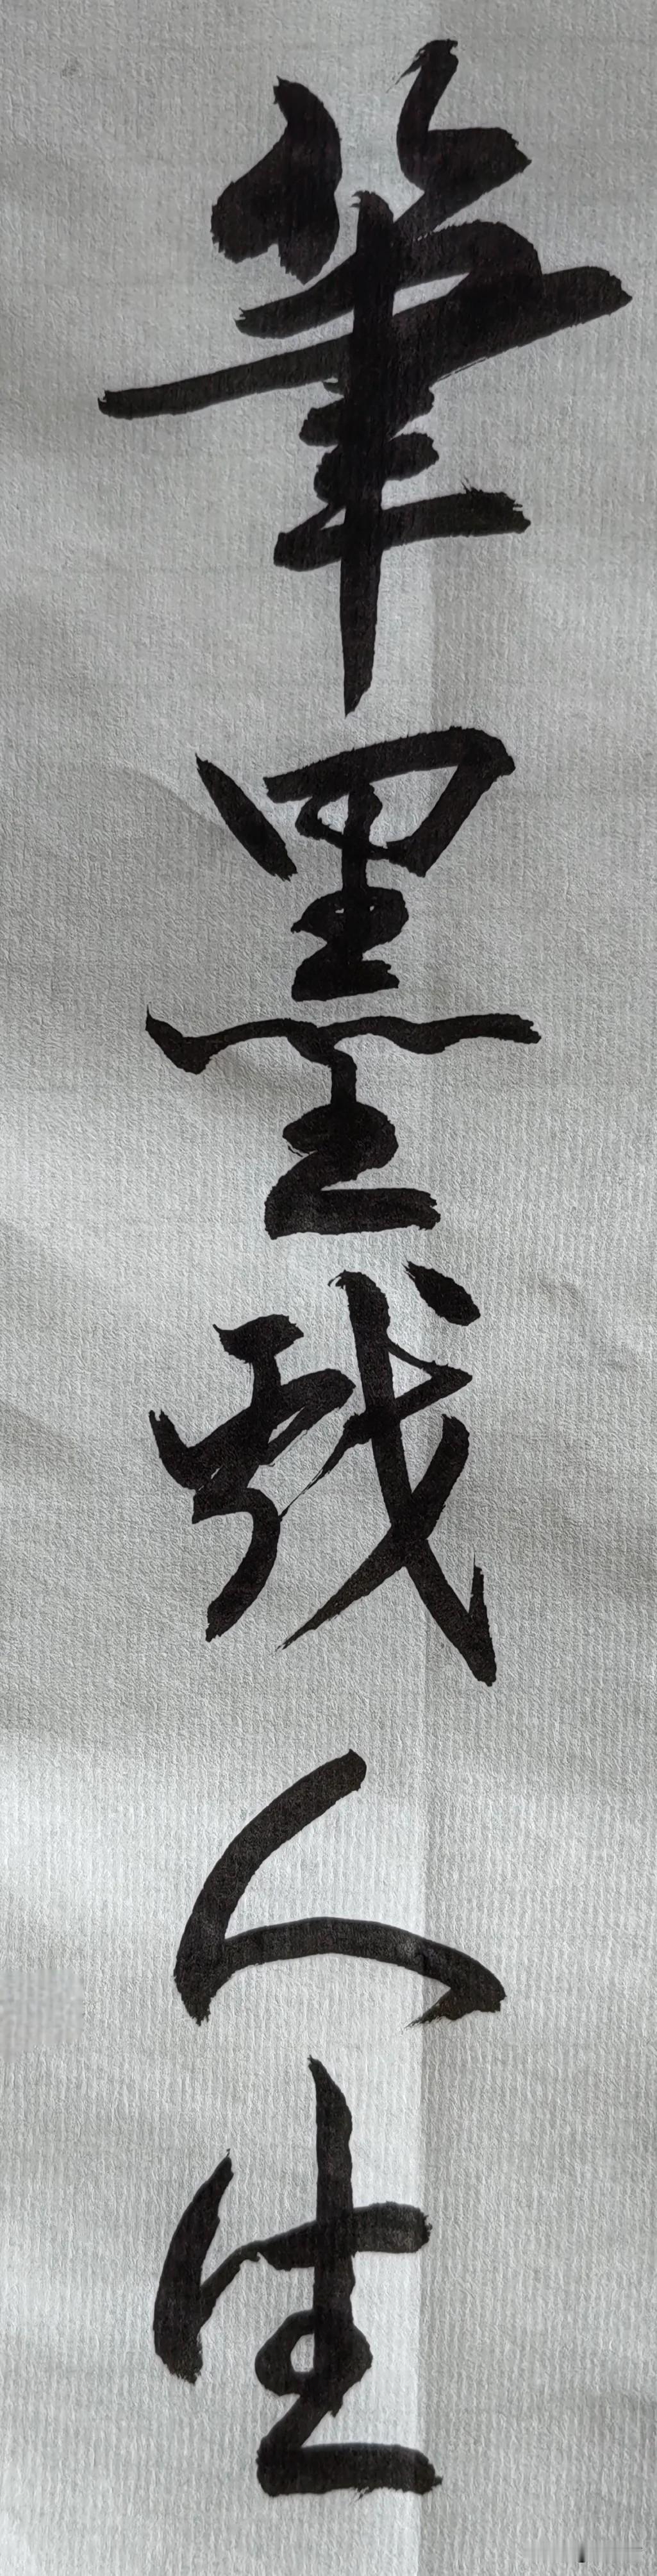 筆墨戏人生